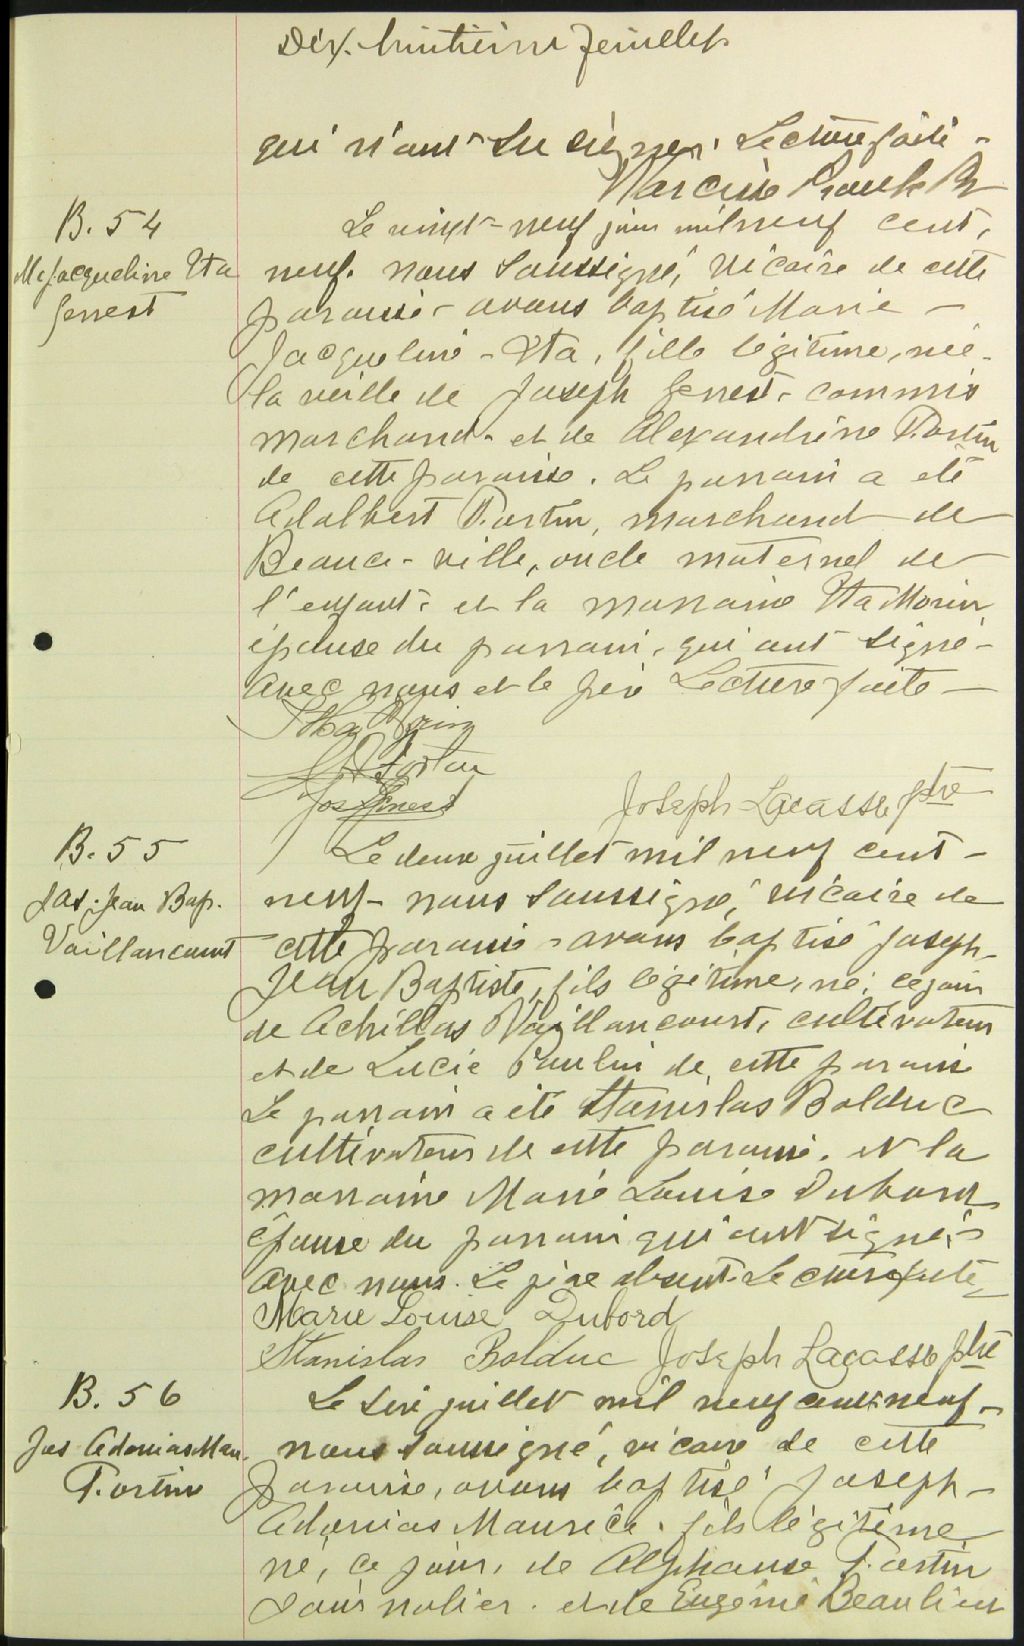 Dix-huitième feuillet
qui n'ont su signer. Lecture faite -
Narcisse Proulx Ptr
B. 54
M. Jacqueline Ita
Genest
Le vingt-neuf juin mil neuf cent,
neuf. nous soussigné, vicaire de cette
paroisse - avons baptisé Marie -
Jacqueline - Ita, fille légitime, née -
la veille de Joseph Genest, commis
marchand - et de Alexandrine Fortin
de cette paroisse. Le parrain a été
Adalbert Fortin, marchand de
Beauce-ville, oncle maternel de
l'enfant - et la marraine Ita Morin
épouse du parrain, qui ont signé -
avec nous et le père Lecture faite -
Ita Morin
Fortin
Jos Genest
Joseph Lacasse ptre
B. 55
Jos. Jean Bap.
Vaillancourt
Le deux juillet mil neuf cent -
neuf - nous soussigné, vicaire de
cette paroisse - avons baptisé Joseph -
Jean Baptiste, fils légitime, né, ce jour
de Achillas Vaillancourt, cultivateur
et de Lucie Poulin de cette paroisse
Le parrain a été Stanislas Bolduc
cultivateur de cette paroisse. et la
marraine Marie Louise Dubord
épouse du parrain qui ont signés
avec nous. Le père absent. Lecture faite
Marie Louise Dubord
Stanislas Bolduc Joseph Lacasse ptre
B. 56
Jos Adonias Mau.
Fortin
Le six juillet mil neuf cent neuf -
nous soussigné, vicaire de cette
paroisse, avons baptisé Joseph -
Adonias Maurice. fils légitime
né, ce jour, de Alphonse Fortin
journalier. et de Eugénie Beaulieu